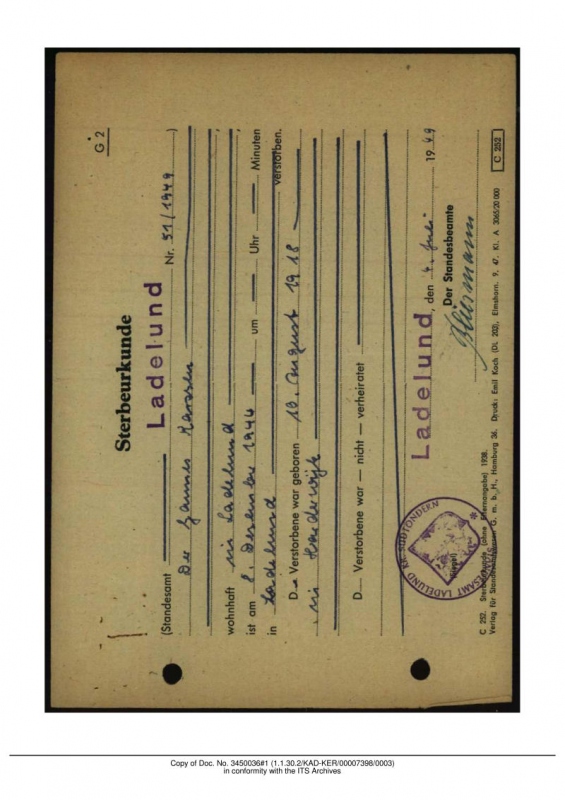 G 2
Sterbeurkunde
(Standesamt Ladelund Nr. 51/1949 )
Der Hannes Karssen
wohnhaft in Ladelund
ist am 8. Dezember 1944 um Uhr Minuten
in Ladelund verstorben.
D er Verstorbene war geboren 10. August 1918
in Harderwijk
D Verstorbene war — nicht — verheiratet
Ladelund, den 4. Juli 1949
Der Standesbeamte
(Siegel)
STANDESAMT LADELUND KR. SÜDTONDERN
C 252. Sterbeurkunde (ohne Elternangabe) 1938.
Verlag für Standesamtswesen G. m. b. H., Hamburg 36. Druck: Emil Koch (DL 202), Elmshorn. 9. 47. Kl. A 3065/20 000
C 252
Copy of Doc. No. 3450036#1 (1.1.30.2/KAD-KER/00007398/0003)
in conformity with the ITS Archives